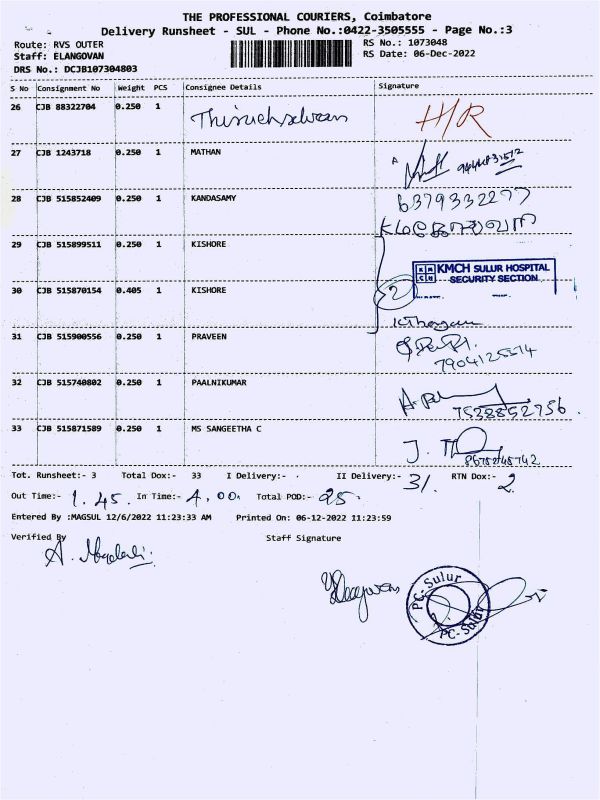 THE PROFESSIONAL COURIERS, Coimbatore
Delivery Runsheet - SUL - Phone No.:0422-3505555 - Page No.:3
Route: RVS OUTER RS No.: 1073048
Staff: ELANGOVAN RS Date: 06-Dec-2022
DRS No.: DCJB107304803
S No Consignment No Weight PCS Consignee Details Signature
26 CJB 88322704 0.250 1 H/R
27 CJB 1243718 0.250 1 MATHAN
28 CJB 515852409 0.250 1 KANDASAMY 6379332277
29 CJB 515899511 0.250 1 KISHORE
KMCH SULUR HOSPITAL
SECURITY SECTION
30 CJB 515870154 0.405 1 KISHORE 2
31 CJB 515900556 0.250 1 PRAVEEN
7904125574
32 CJB 515740802 0.250 1 PAALNIKUMAR
7538852756
33 CJB 515871589 0.250 1 MS SANGEETHA C
Tot. Runsheet:- 3 Total Dox:- 33 I Delivery:- II Delivery:- 31 RTN Dox:- 2
Out Time:- 1.45 In Time:- 4.00 Total POD:- 25
Entered By :MAGSUL 12/6/2022 11:23:33 AM Printed On: 06-12-2022 11:23:59
Verified By Staff Signature
PC-Sulur
PC-Sulur